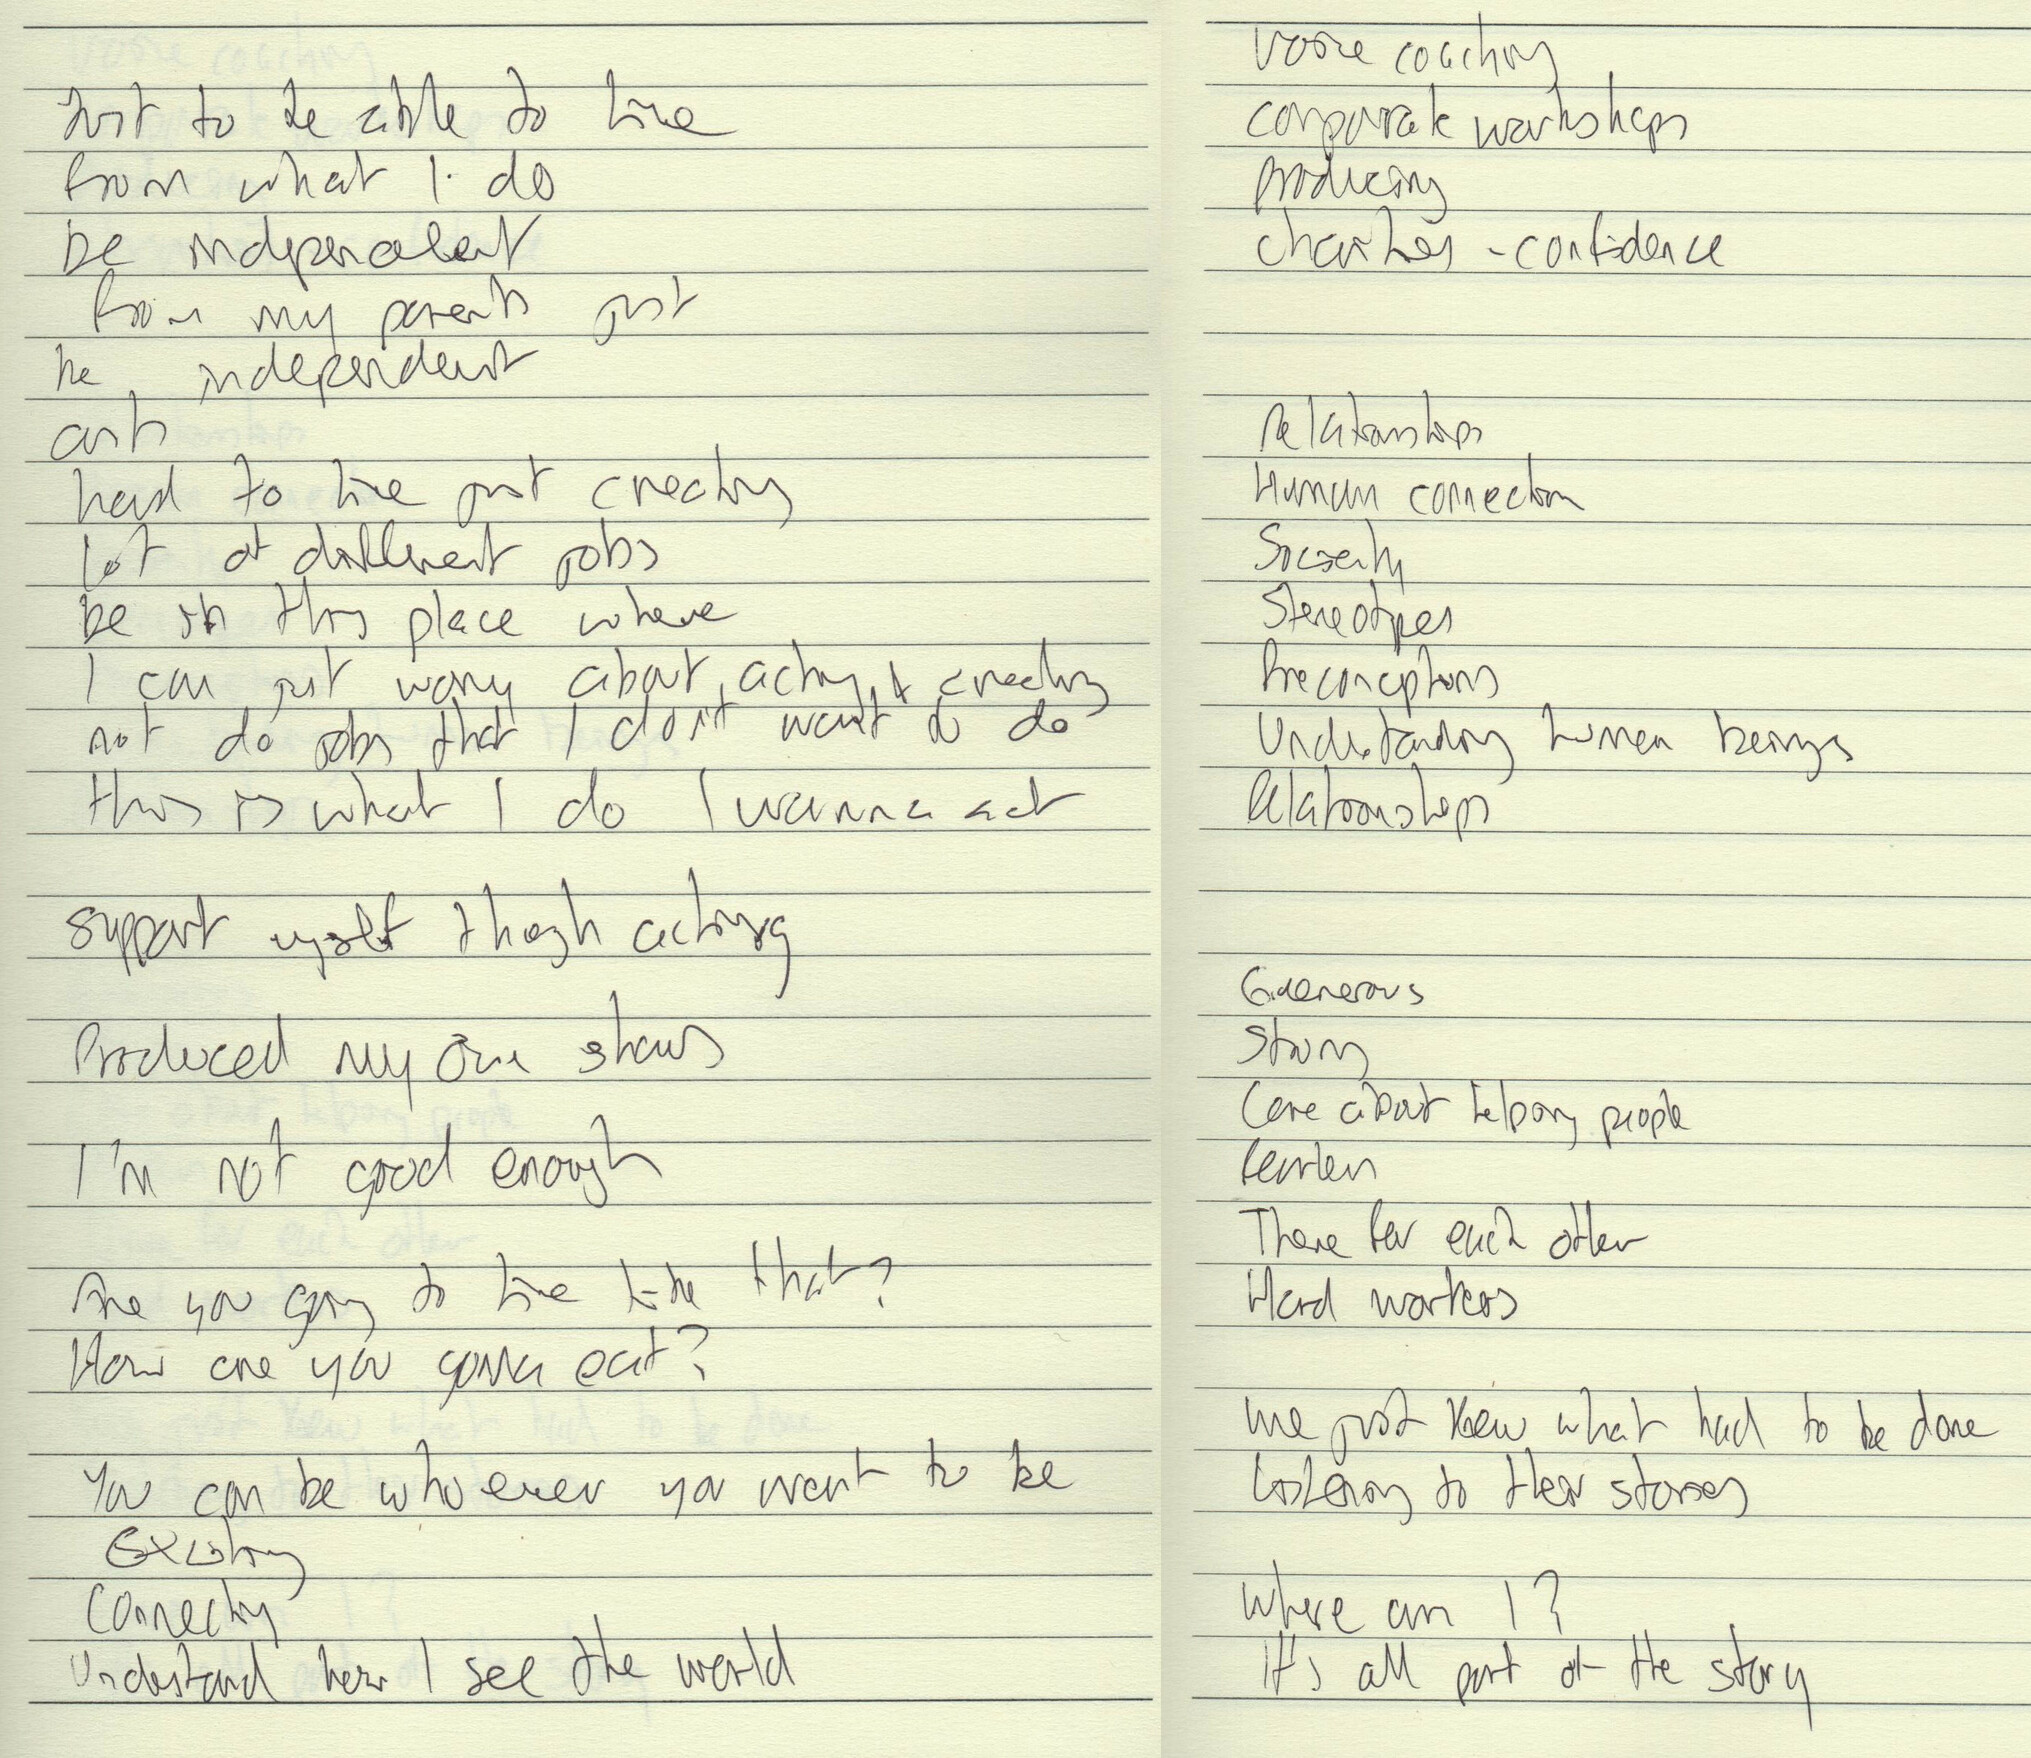 Just to be able to live
from what I do
be independent
from my parents just
be independent
arts
hard to live just creating
lot of different jobs
be in this place where
I can just worry about acting & creating
not do jobs that I don't want to do
this is what I do I wanna act
support myself though acting
Produced my own shows
I'm not good enough
Are you going to live like that?
How are you gonna eat?
You can be whoever you want to be
Existing
Connecting
Understand how I see the world
Voice coaching
corporate workshops
producing
charities - confidence
Relationships
Human connection
Society
Stereotypes
Preconceptions
Understanding human beings
Relationships
Generous
Strong
Care about helping people
Fearless
There for each other
Hard workers
We just knew what had to be done
Listening to their stories
Where am I?
It's all part of the story